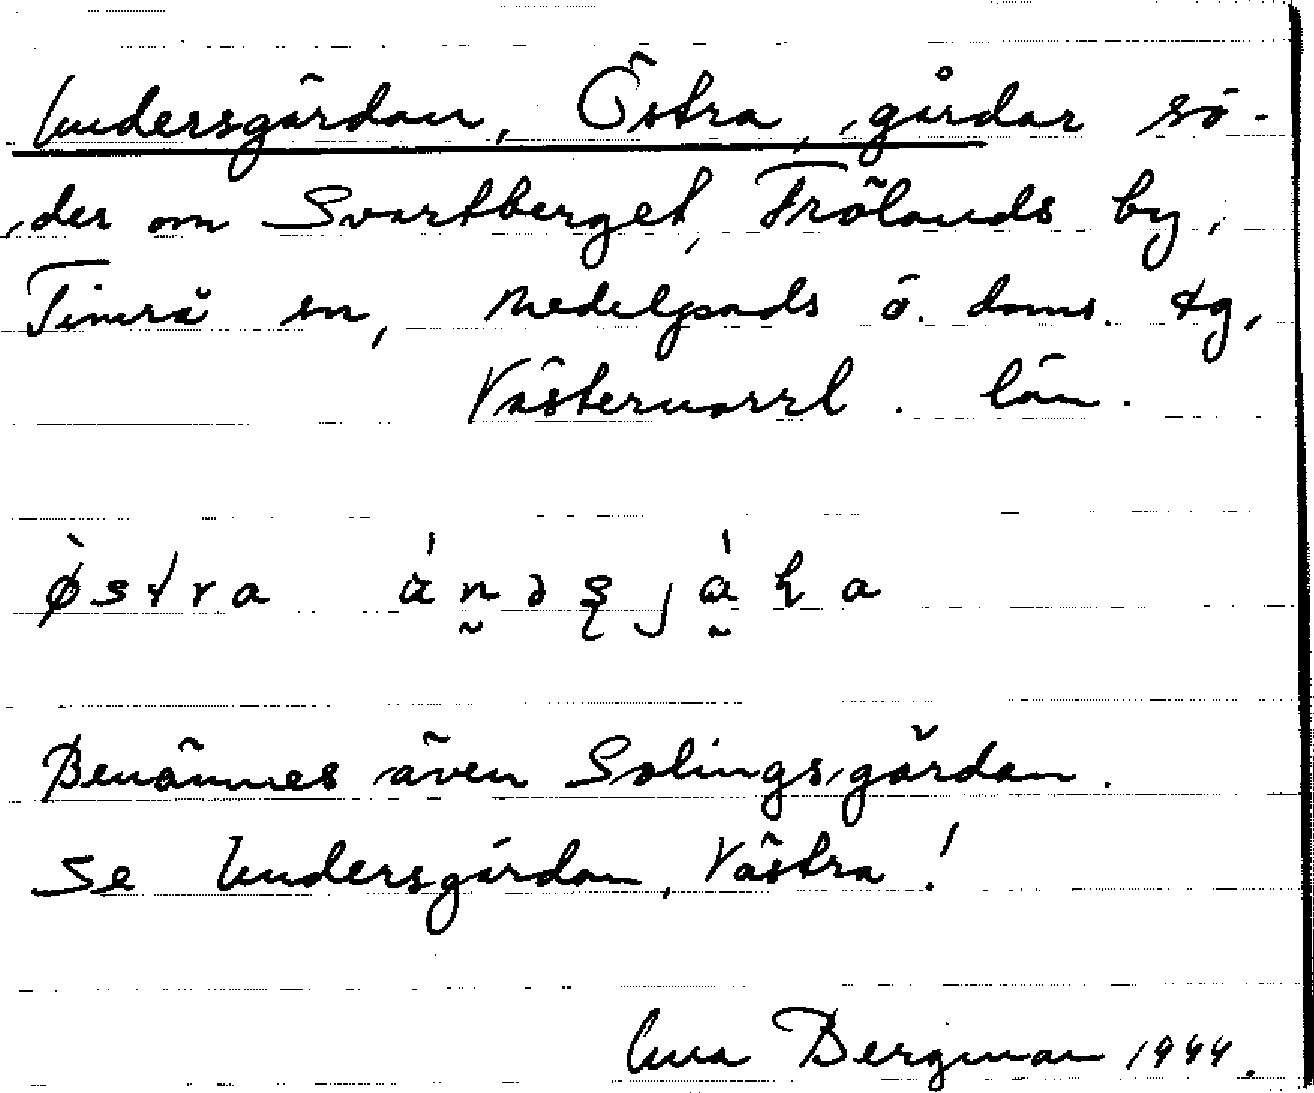 Andersgårdan, Östra, gårdar sö-
der om Svartberget, Frölands by,
Timrå sn, Medelpads ö. doms. tg,
Västernorrl. län.
ø̀stra án̰əʂjá̰ɽa
Benämnes även Solingsgårdan.
Se Andersgårdan, Västra!
Anna Bergman 1944.